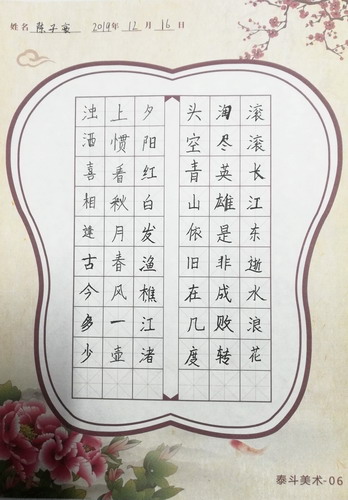 姓名 陈子 2019年 12月 16日
滚滚长江东逝水浪花
淘尽英雄是非成败转
头空青山依旧在几度
夕阳红白发渔樵江渚
上惯看秋月春风一壶
浊酒喜相逢古今多少
泰斗美术-06